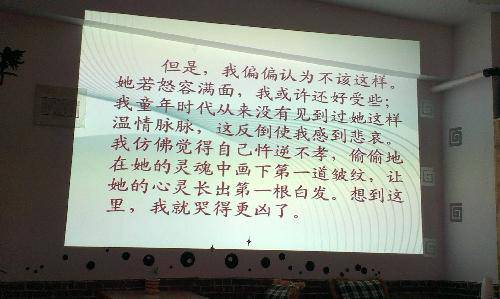 但是，我偏偏认为不该这样。
她若怒容满面，我或许还好受些；
我童年时代从来没有见到过她这样
温情脉脉，这反倒使我感到悲哀。
我仿佛觉得自己忤逆不孝，偷偷地
在她的灵魂中画下第一道皱纹，让
她的心灵长出第一根白发。想到这
里，我就哭得更凶了。